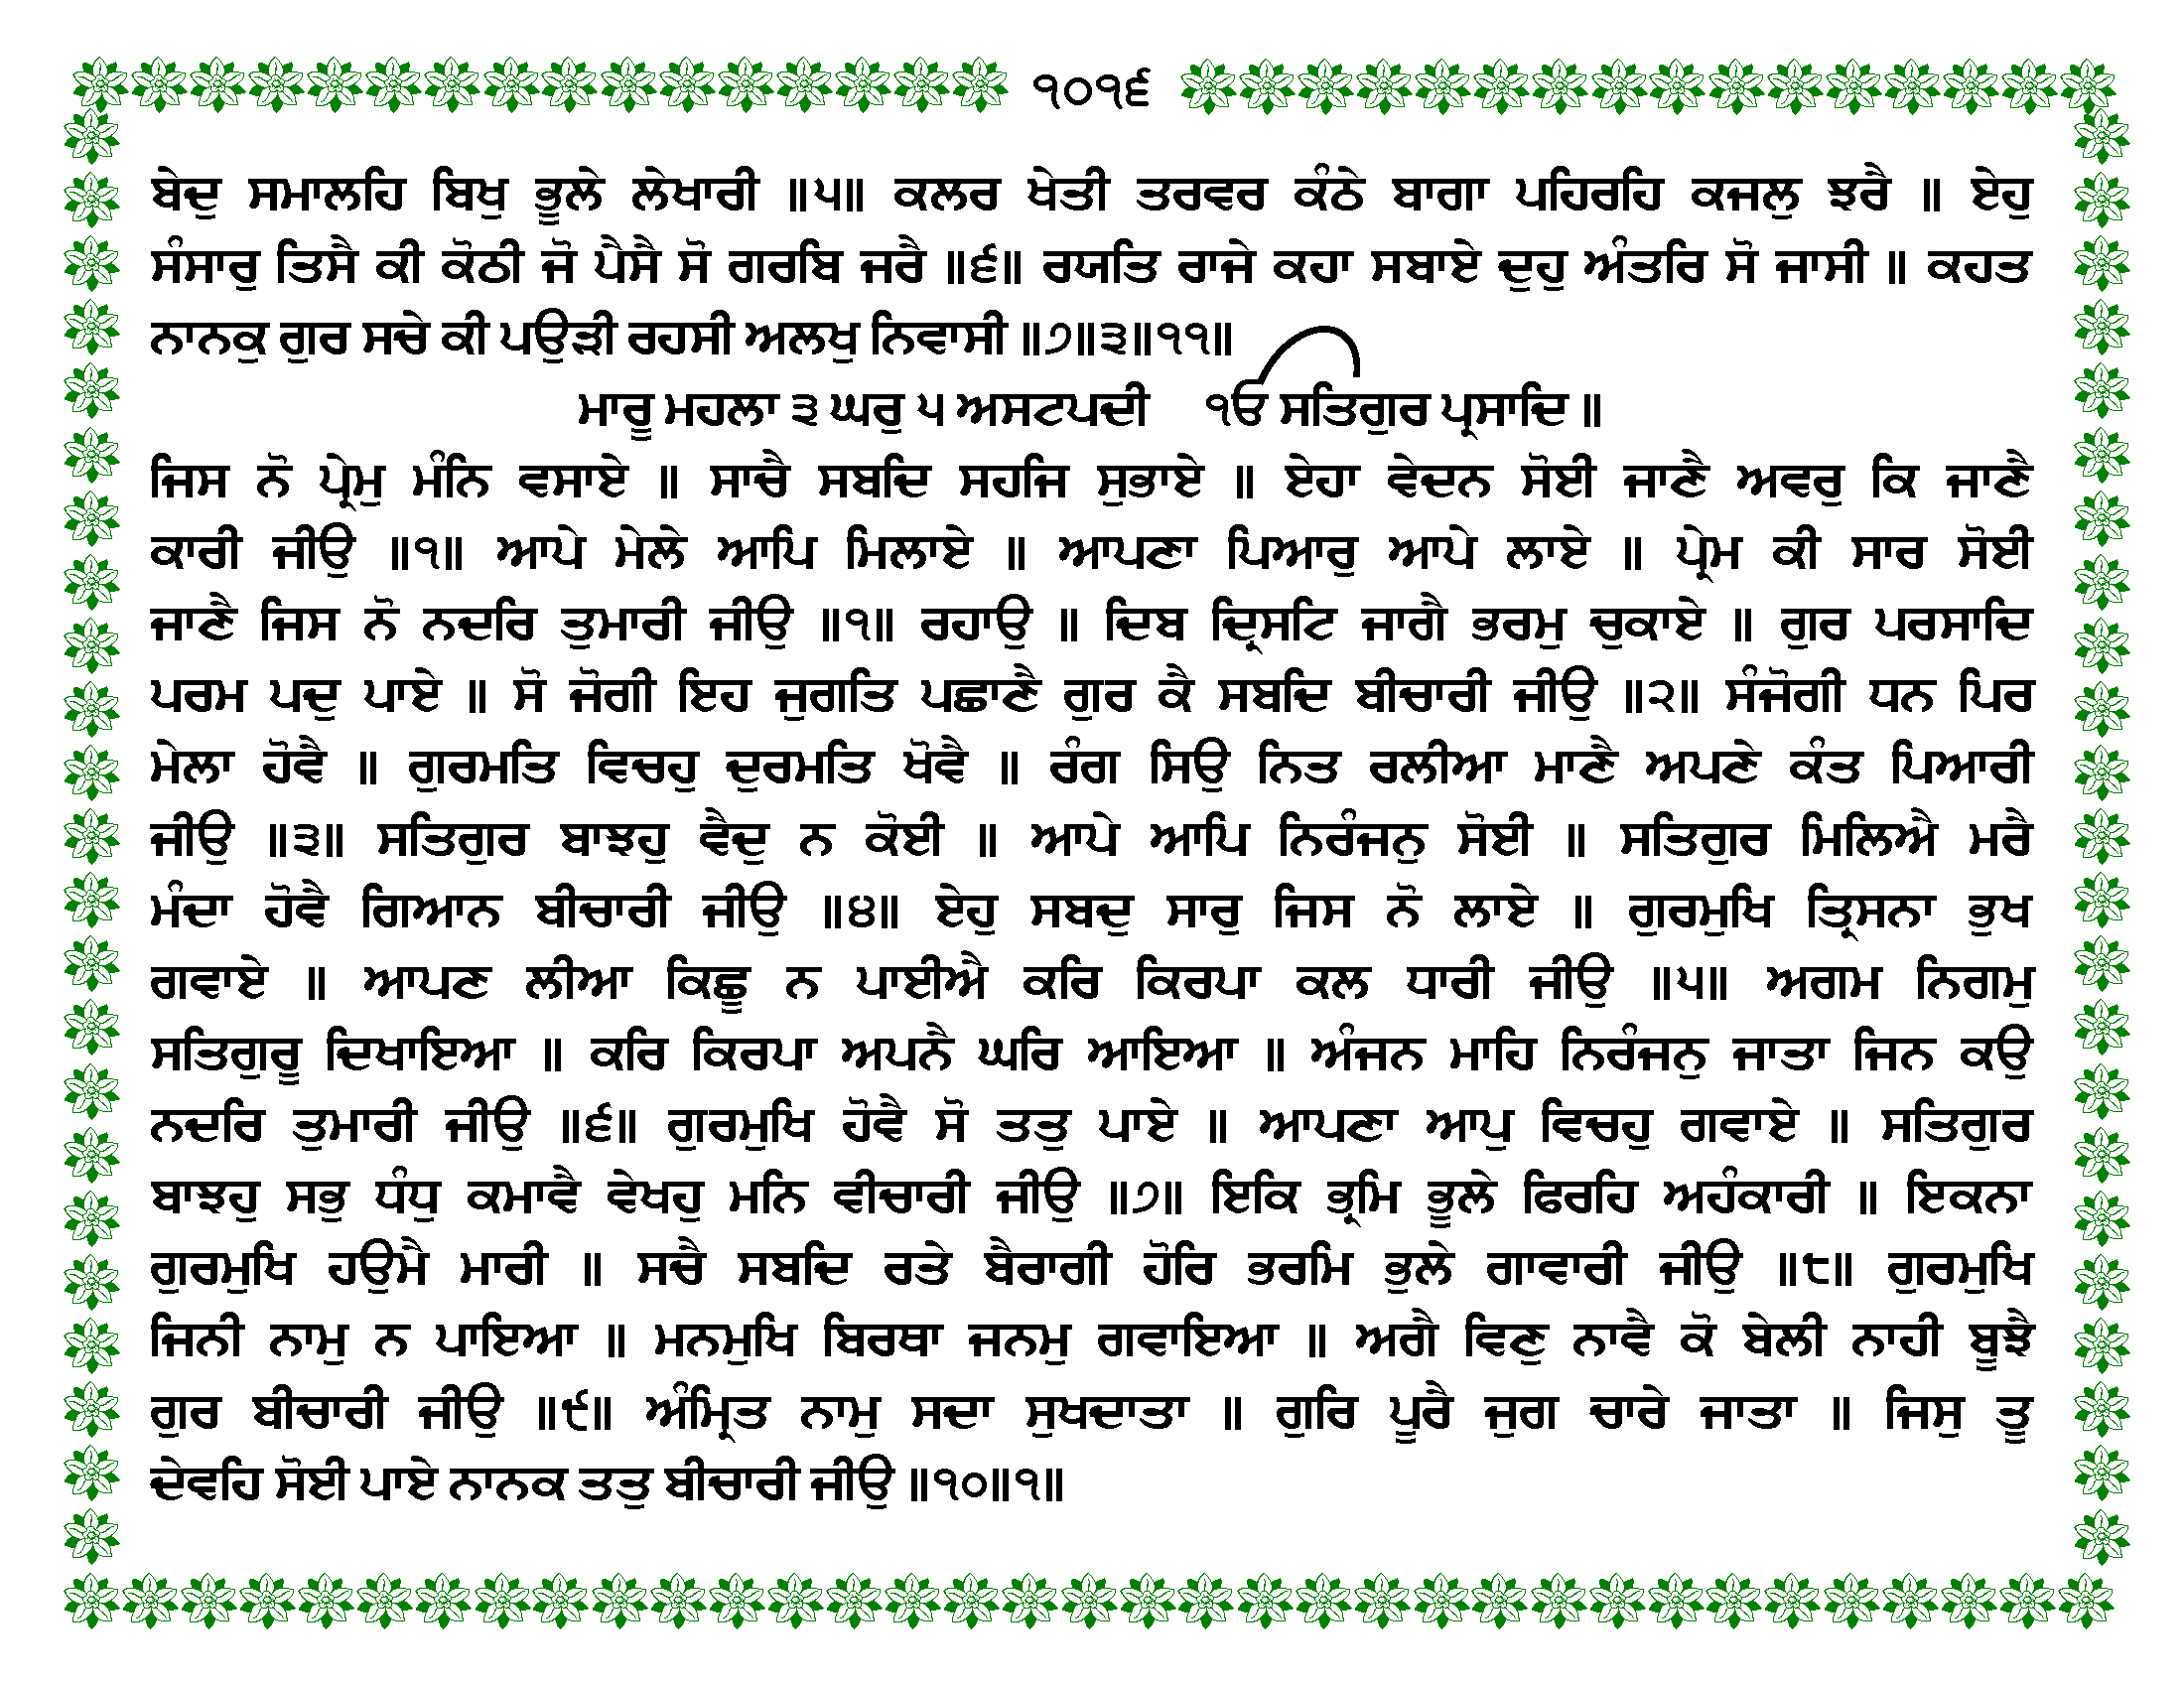 ੧੦੧੬
ਬੇਦੁ ਸਮਾਲਹਿ ਬਿਖੁ ਭੂਲੇ ਲੇਖਾਰੀ ॥੫॥ ਕਲਰ ਖੇਤੀ ਤਰਵਰ ਕੰਠੇ ਬਾਗਾ ਪਹਿਰਹਿ ਕਜਲੁ ਝਰੈ ॥ ਏਹੁ
ਸੰਸਾਰੁ ਤਿਸੈ ਕੀ ਕੋਠੀ ਜੋ ਪੈਸੈ ਸੋ ਗਰਬਿ ਜਰੈ ॥੬॥ ਰਯਤਿ ਰਾਜੇ ਕਹਾ ਸਬਾਏ ਦੁਹੁ ਅੰਤਰਿ ਸੋ ਜਾਸੀ ॥ ਕਹਤ
ਨਾਨਕੁ ਗੁਰ ਸਚੇ ਕੀ ਪਉੜੀ ਰਹਸੀ ਅਲਖੁ ਨਿਵਾਸੀ ॥੭॥੩॥੧੧॥
ਮਾਰੂ ਮਹਲਾ ੩ ਘਰੁ ੫ ਅਸਟਪਦੀ ੴ ਸਤਿਗੁਰ ਪ੍ਰਸਾਦਿ ॥
ਜਿਸ ਨੋ ਪ੍ਰੇਮੁ ਮੰਨਿ ਵਸਾਏ ॥ ਸਾਚੈ ਸਬਦਿ ਸਹਜਿ ਸੁਭਾਏ ॥ ਏਹਾ ਵੇਦਨ ਸੋਈ ਜਾਣੈ ਅਵਰੁ ਕਿ ਜਾਣੈ
ਕਾਰੀ ਜੀਉ ॥੧॥ ਆਪੇ ਮੇਲੇ ਆਪਿ ਮਿਲਾਏ ॥ ਆਪਣਾ ਪਿਆਰੁ ਆਪੇ ਲਾਏ ॥ ਪ੍ਰੇਮ ਕੀ ਸਾਰ ਸੋਈ
ਜਾਣੈ ਜਿਸ ਨੋ ਨਦਰਿ ਤੁਮਾਰੀ ਜੀਉ ॥੧॥ ਰਹਾਉ ॥ ਦਿਬ ਦ੍ਰਿਸਟਿ ਜਾਗੈ ਭਰਮੁ ਚੁਕਾਏ ॥ ਗੁਰ ਪਰਸਾਦਿ
ਪਰਮ ਪਦੁ ਪਾਏ ॥ ਸੋ ਜੋਗੀ ਇਹ ਜੁਗਤਿ ਪਛਾਣੈ ਗੁਰ ਕੈ ਸਬਦਿ ਬੀਚਾਰੀ ਜੀਉ ॥੨॥ ਸੰਜੋਗੀ ਧਨ ਪਿਰ
ਮੇਲਾ ਹੋਵੈ ॥ ਗੁਰਮਤਿ ਵਿਚਹੁ ਦੁਰਮਤਿ ਖੋਵੈ ॥ ਰੰਗ ਸਿਉ ਨਿਤ ਰਲੀਆ ਮਾਣੈ ਅਪਣੇ ਕੰਤ ਪਿਆਰੀ
ਜੀਉ ॥੩॥ ਸਤਿਗੁਰ ਬਾਝਹੁ ਵੈਦੁ ਨ ਕੋਈ ॥ ਆਪੇ ਆਪਿ ਨਿਰੰਜਨੁ ਸੋਈ ॥ ਸਤਿਗੁਰ ਮਿਲਿਐ ਮਰੈ
ਮੰਦਾ ਹੋਵੈ ਗਿਆਨ ਬੀਚਾਰੀ ਜੀਉ ॥੪॥ ਏਹੁ ਸਬਦੁ ਸਾਰੁ ਜਿਸ ਨੋ ਲਾਏ ॥ ਗੁਰਮੁਖਿ ਤ੍ਰਿਸਨਾ ਭੁਖ
ਗਵਾਏ ॥ ਆਪਣ ਲੀਆ ਕਿਛੂ ਨ ਪਾਈਐ ਕਰਿ ਕਿਰਪਾ ਕਲ ਧਾਰੀ ਜੀਉ ॥੫॥ ਅਗਮ ਨਿਗਮੁ
ਸਤਿਗੁਰੂ ਦਿਖਾਇਆ ॥ ਕਰਿ ਕਿਰਪਾ ਅਪਨੈ ਘਰਿ ਆਇਆ ॥ ਅੰਜਨ ਮਾਹਿ ਨਿਰੰਜਨੁ ਜਾਤਾ ਜਿਨ ਕਉ
ਨਦਰਿ ਤੁਮਾਰੀ ਜੀਉ ॥੬॥ ਗੁਰਮੁਖਿ ਹੋਵੈ ਸੋ ਤਤੁ ਪਾਏ ॥ ਆਪਣਾ ਆਪੁ ਵਿਚਹੁ ਗਵਾਏ ॥ ਸਤਿਗੁਰ
ਬਾਝਹੁ ਸਭੁ ਧੰਧੁ ਕਮਾਵੈ ਵੇਖਹੁ ਮਨਿ ਵੀਚਾਰੀ ਜੀਉ ॥੭॥ ਇਕਿ ਭ੍ਰਮਿ ਭੂਲੇ ਫਿਰਹਿ ਅਹੰਕਾਰੀ ॥ ਇਕਨਾ
ਗੁਰਮੁਖਿ ਹਉਮੈ ਮਾਰੀ ॥ ਸਚੈ ਸਬਦਿ ਰਤੇ ਬੈਰਾਗੀ ਹੋਰਿ ਭਰਮਿ ਭੁਲੇ ਗਾਵਾਰੀ ਜੀਉ ॥੮॥ ਗੁਰਮੁਖਿ
ਜਿਨੀ ਨਾਮੁ ਨ ਪਾਇਆ ॥ ਮਨਮੁਖਿ ਬਿਰਥਾ ਜਨਮੁ ਗਵਾਇਆ ॥ ਅਗੈ ਵਿਣੁ ਨਾਵੈ ਕੋ ਬੇਲੀ ਨਾਹੀ ਬੂਝੈ
ਗੁਰ ਬੀਚਾਰੀ ਜੀਉ ॥੯॥ ਅੰਮ੍ਰਿਤ ਨਾਮੁ ਸਦਾ ਸੁਖਦਾਤਾ ॥ ਗੁਰਿ ਪੂਰੈ ਜੁਗ ਚਾਰੇ ਜਾਤਾ ॥ ਜਿਸੁ ਤੂ
ਦੇਵਹਿ ਸੋਈ ਪਾਏ ਨਾਨਕ ਤਤੁ ਬੀਚਾਰੀ ਜੀਉ ॥੧੦॥੧॥